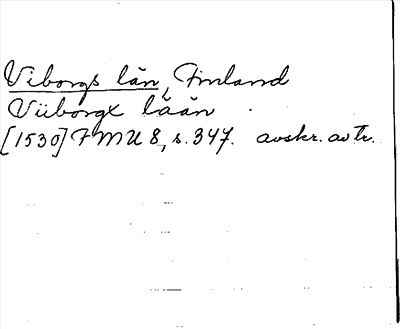 Viborgs län, Finland
Viiborgx lään
[1530] FMU 8, s. 347. avskr. av tr.